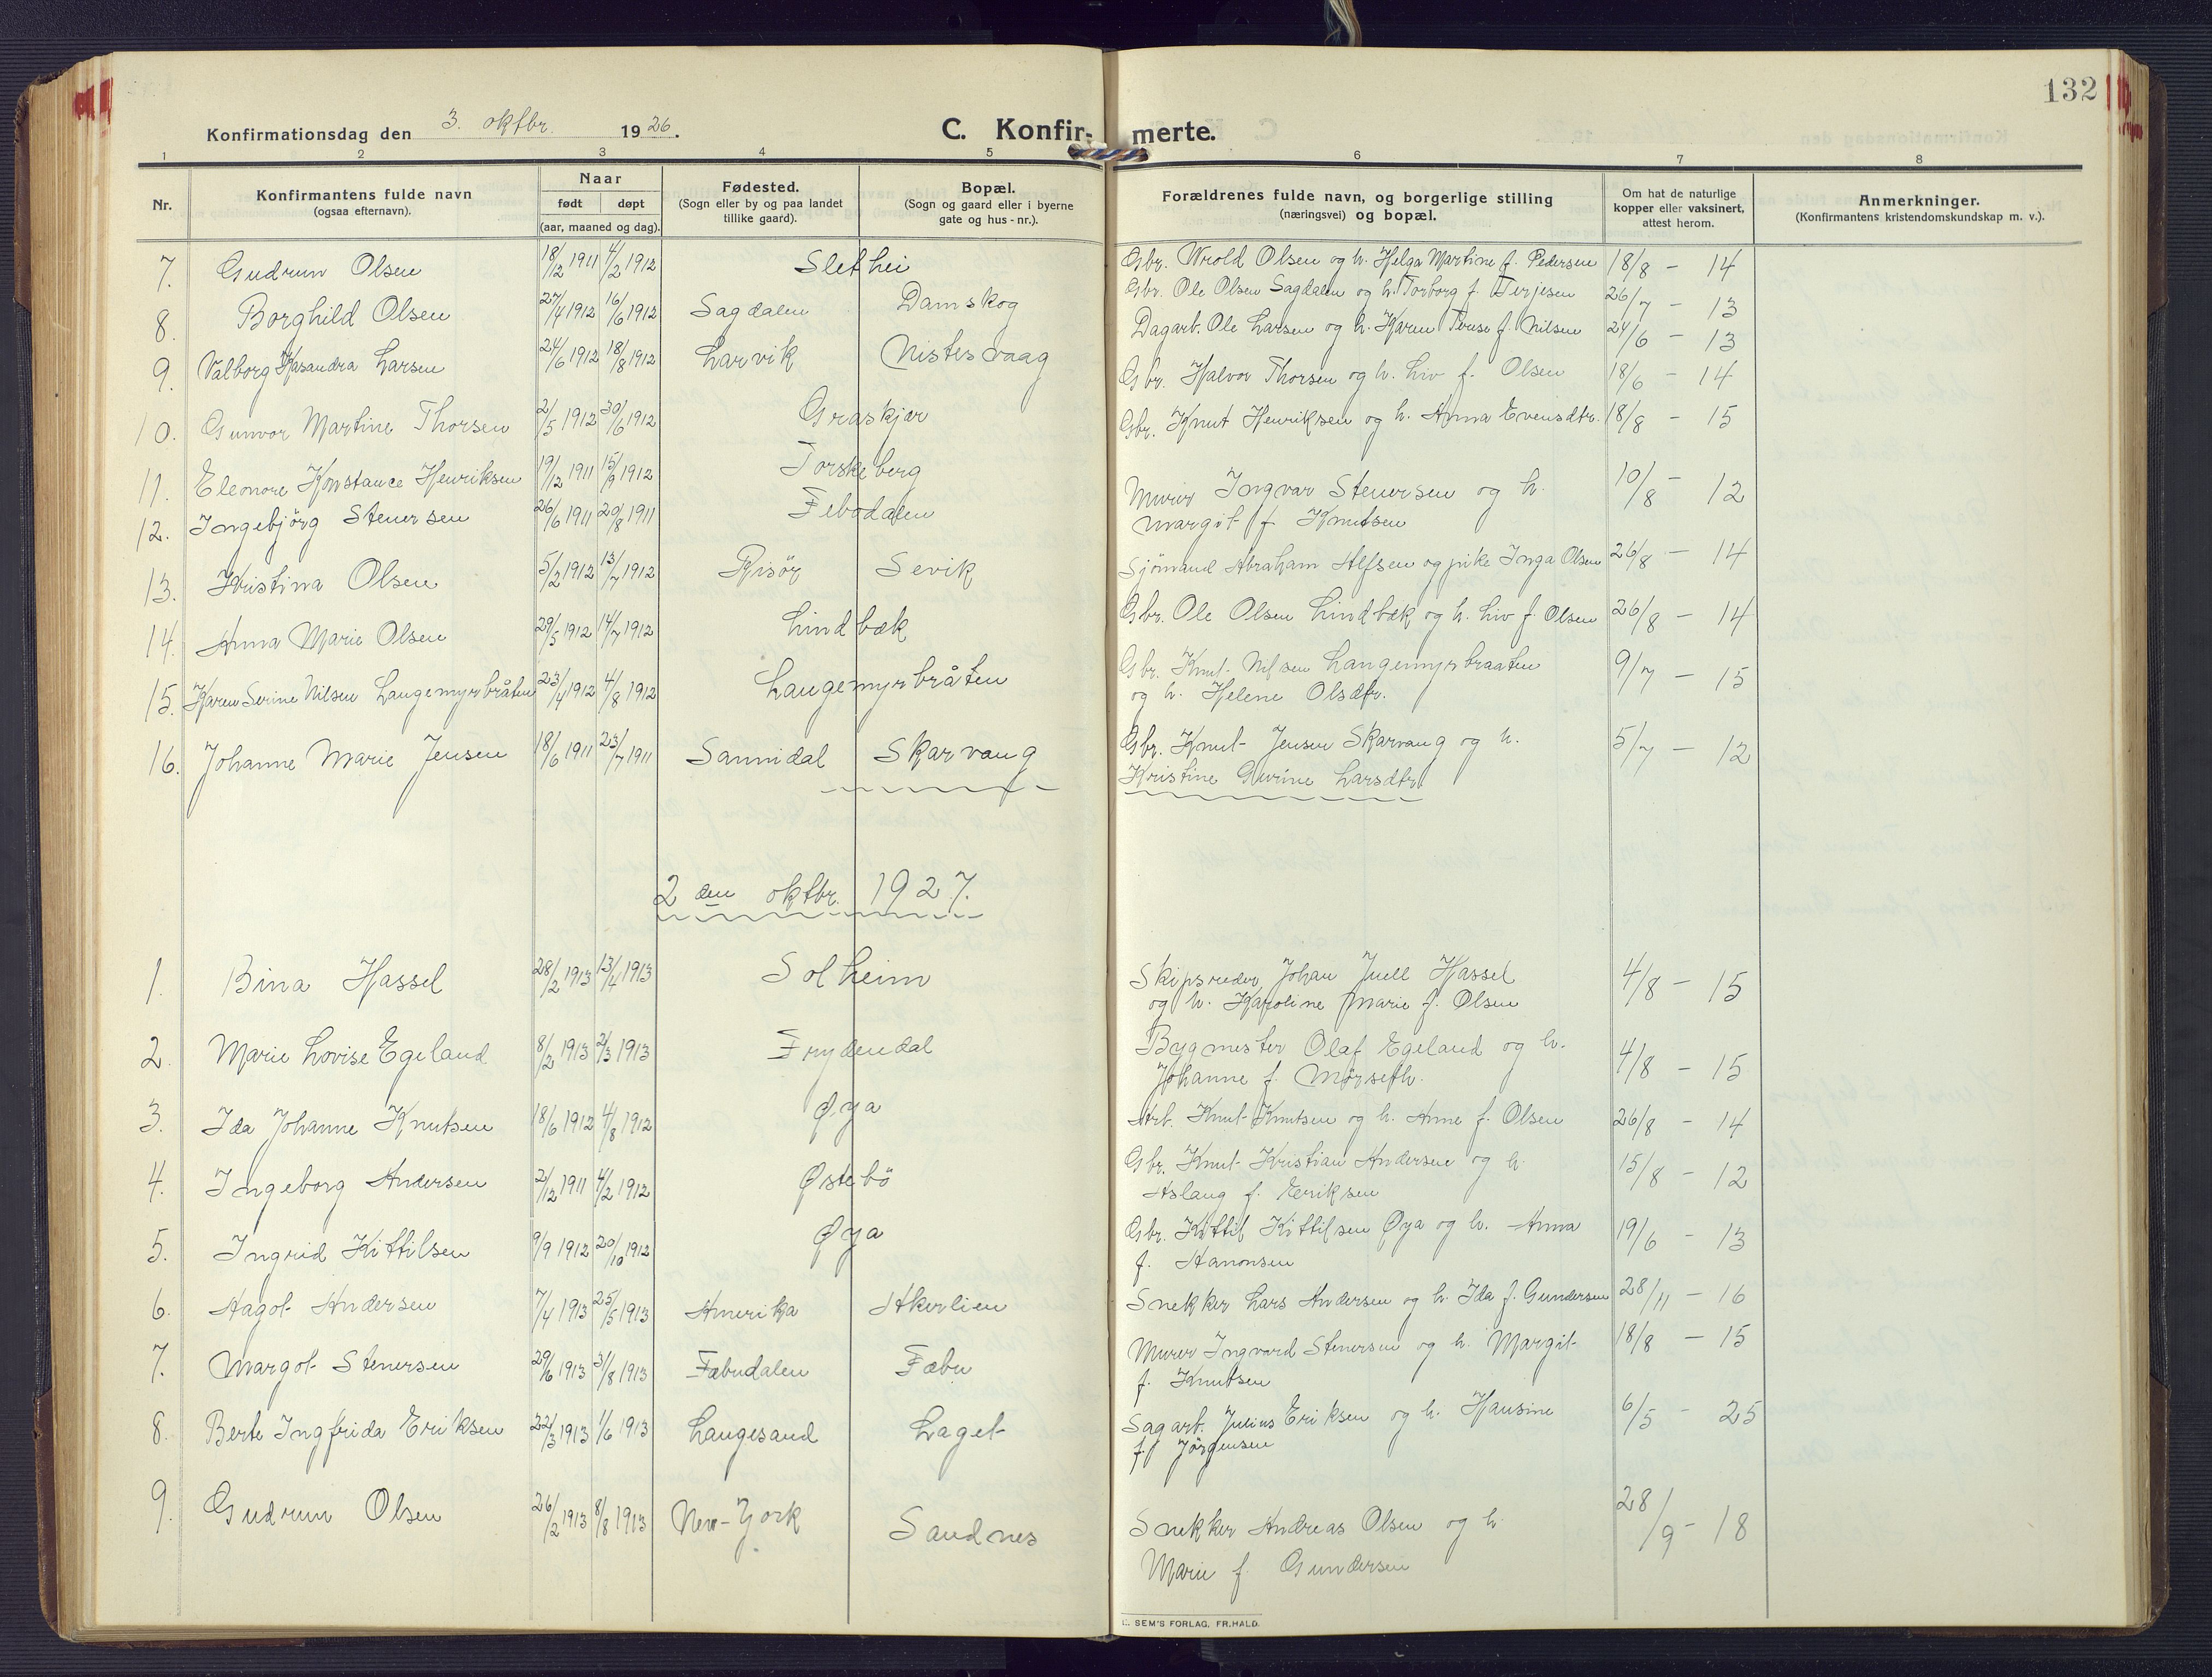 132
Konfirmationsdag den 3. oktbr. 1926.
C. Konfirmerte.
1 2 3 4 5 6 7 8
Nr.
Konfirmantens fulde navn
(ogsaa efternavn).
Naar
født døpt
(aar, maaned og dag).
Fødested.
(Sogn eller by og paa landet
tillike gaard).
Bopæl.
(Sogn og gaard eller i byerne
gate og hus-nr.).
Forældrenes fulde navn, og borgerlige stilling
(næringsvei) og bopæl.
Om hat de naturlige
kopper eller vaksinert,
attest herom.
Anmerkninger.
(Konfirmantens kristendomskundskap m. v.).
7. Gudrun Olsen 18/12 1911 4/2 1912 Slethei Gbr. Wrold Olsen og h. Helga Martine f. Pedersen 18/8 - 14
8. Borghild Olsen 27/4 1912 16/6 1912 Sagdalen Damskog Gbr. Ole Olsen Sagdalen og h. Torborg f. Terjesen 26/7 - 13
9. Valborg Kasandra Larsen 24/6 1912 18/8 1912 Larvik Nistesvaag Dagarb. Ole Larsen og h. Karen Teruse f. Nilsen 24/6 - 13
10. Gunvor Martine Thorsen 2/5 1912 30/6 1912 Graskjær Gbr. Halvor Thorsen og h. Liv f. Olsen 18/6 - 14
11. Eleonore Konstance Henriksen 19/12 1911 15/9 1912 Torskeberg Gbr. Knut Henriksen og h. Anna Evensdtr. 18/8 - 15
12. Ingebjörg Stenersen 26/6 1911 20/8 1911 Febodalen Murer Ingvar Stenersen og h.
Margit f Knutsen 10/8 - 12
13. Kristina Olsen 5/2 1912 13/7 1912 Risör Sevik Sjömand Abraham Alfsen og pike Inga Olsen 26/8 - 14
14. Anna Marie Olsen 29/5 1912 14/7 1912 Lindbæk Gbr. Ole Olsen Lindbæk og h. Liv f. Olsen 26/8 - 14
15. Karen Serine Nilsen Langemyrbråten 23/4 1912 4/8 1912 Langemyrbråten Gbr. Knut Nilsen Langemyrbraaten
og h. Helene Olsdtr. 9/7 - 15
16. Johanne Marie Jensen 18/6 1911 23/7 1911 Sannidal Skarvang Gbr. Knut Jensen Skarvang og h.
Kristine Gurine Larsdtr. 5/7 - 12
2 den oktbr. 1927.
1. Bina Hassel 28/2 1913 13/4 1913 Solheim Skipsreder Johan Juell Hassel
og h. Karoline Marie f. Olsen 4/8 - 15
2. Marie Lovise Egeland 8/2 1913 2/3 1913 Frydendal Bygmester Olaf Egeland og h.
Johanne f. Mørseth. 4/8 - 15
3. Ida Johanne Knutsen 18/6 1912 4/8 1912 Øya Arb. Knut Knutsen og h. Anne f. Olsen 26/8 - 14
4. Ingeborg Andersen 2/12 1911 4/2 1912 Østebö Gbr. Knut Kristian Andersen og h.
Aslaug f. Eriksen 15/8 - 12
5. Ingrid Kittilsen 9/9 1912 20/10 1912 Øya Gbr. Kittil Kittilsen Øya og h. Anna
f. Aanonsen 19/6 - 13
6. Aagot Andersen 7/4 1913 25/5 1913 Amerika Akerlien Snekker Lars Andersen og h. Ida f. Gundersen 28/11 - 16
7. Margot Stenersen 29/6 1913 31/8 1913 Fæbudalen Fæbu Murer Ingvard Stenersen og h. Margit
f. Knutsen 18/8 - 15
8. Berte Ingfrida Eriksen 22/3 1913 1/6 1913 Langesand Laget Sagarb. Julius Eriksen og h. Hansine
f. Jörgensen 6/5 - 25
9. Gudrun Olsen 26/2 1913 8/8 1913 New-York Sandnes Snekker Andreas Olsen og h
Marie f. Gundersen 28/9 - 18
E. SEM'S FORLAG, FR.HALD.